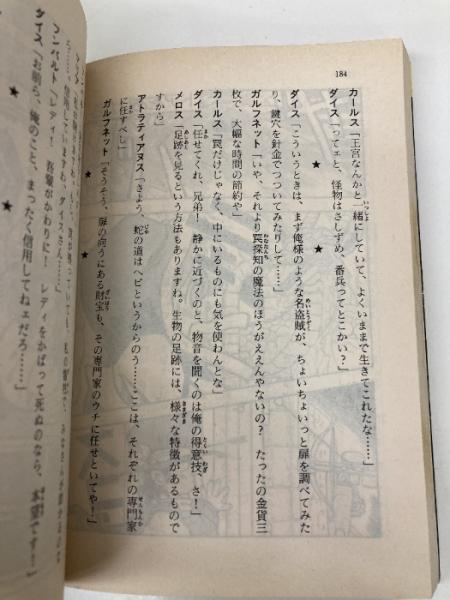 184
カールス「王宮なんかと一緒にしていて、よくいままで生きてこれたな……」
ダイス「ってェと、怪物はさしずめ、番兵ってとこかい?」
★ ★
ダイス「こういうときは、まず俺様のような名盗賊が、ちょいちょいっと扉を調べてみた
り、鍵穴を針金でつついてみたりして……」
ガルフネット「いや、それより罠探知の魔法のほうがええんやないの? たったの金貨三
枚で、大幅な時間の節約や」
カールス「罠だけじゃなく、中にいるものにも気を使わんとな」
ダイス「任せてくれ、兄弟! 静かに近づくのと、物音を聞くのは俺の得意技、さ!」
メロス「足跡を見るという方法もありますね。生物の足跡には、様々な特徴があるもので
すから」
アトラティアヌス「さよう、蛇の道はヘビというからのう……ここは、それぞれの専門家
に任すべし」
ガルフネット「そうそう、扉の向うにある財宝も、その専門家のウチに任せといてや!」
★ ★
信用していますわ、ダイスさん
フンバルト「レディ! 吾輩がかわりに! レディをかばって死ぬのなら、本望です!」
ダイス「お前ら、俺のこと、まったく信用してねェだろ……」